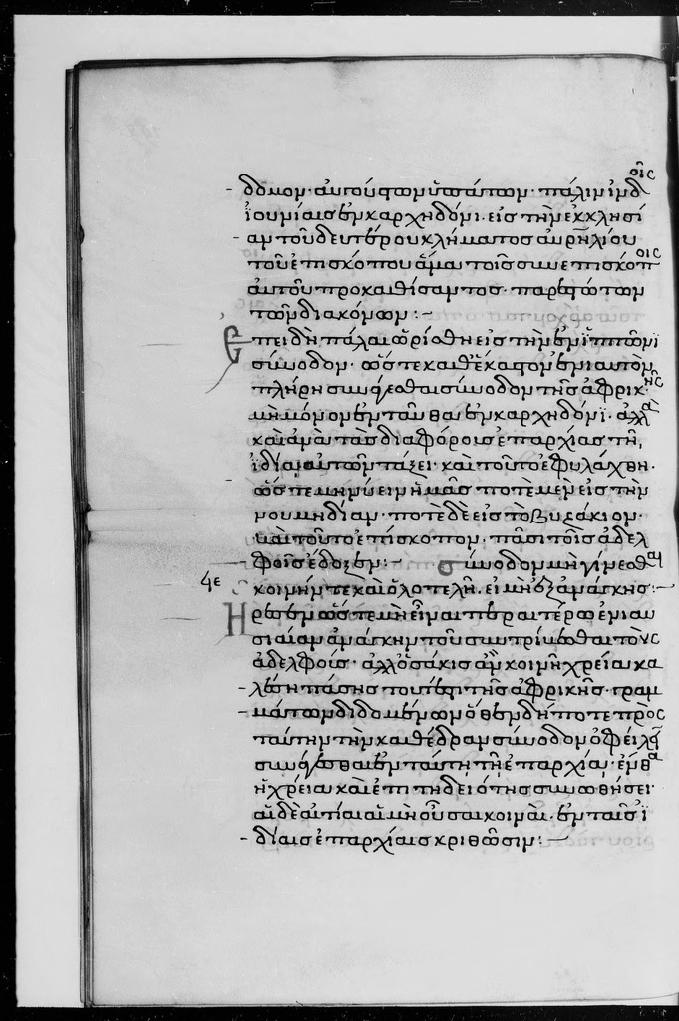 δδομον· αὐγούστων ὑπάτων· πάλιν ἰνδοις
ϊουνίαις ἐν καρχηδόνι. εἰς τὴν ἐκκλησί
αν τοῦ δευτέρου κλήματος αὐρηλίου
τοῦ ἐπισκόπου ἅμα τοῖς συνεπισκόποις
αὐτοῦ προκαθίσαντος· παρεστώτων
τῶν διακόνων :–
Ἐπειδὴ πάλαι ὡρίσθη εἰς τὴν ἐν ϊππῶνϊ
σύνοδον· ὥστε καθ' ἕκαστον ἐνιαυτὸν
πλήρη συνάγεσθαι σύνοδον τῆς ἀφρικῆς·
μὴ μόνον ἐνταῦθα ἐν καρχηδόνϊ· ἀλλὰ
καὶ ἀνὰ τὰς διαφόροις ἐπαρχίας τῆ
ἰδία αὐτῶν τάξει· καὶ τοῦτο ἐφυλάχθη.
ὥστε μηνύειν ἡμᾶς ποτὲ μὲν εἰς τὴν
νουμηδίαν· ποτὲ δὲ εἰς τὸ βυζάκιον.
καὶ τοῦτο ἐπίσκοπον. πᾶσι τοῖς ἀδελ
φοῖς ἔδοξεν :– σύνοδον μὴ γίνεσθαι
ϟε κοινήν τε καὶ ὁλοτελῆ. εἰ μὴ ἐξ ἀνάγκης :–
Ἤρεσεν ὥστε μὴ εἶναι περαιτέρω ἐνιαυ
σιαίαν ἀνάγκην τοῦ συντρίβεσθαι τοὺς
ἀδελφοὺς· ἀλλ' ὁσάκις ἂν κοινὴ χρεία κα
λέση πάσης τουτέστι τῆς ἀφρικῆς· γραμ
μάτων διδομένων ὅθεν δήποτε πρὸς
ταύτην τὴν καθέδραν σύνοδον ὀφείλει
συνάγεσθαι ἐν ταύτη τῆ ἐπαρχία· ἔνθα
ἡ χρεία καὶ ἐπιτηδειότης συνωθήσει·
αἱ δὲ αἰτίαι αἱ μὴ οὖσαι κοιναὶ. ἐν ταῖς ϊ
δίαις ἐπαρχίαις κριθῶσιν :–